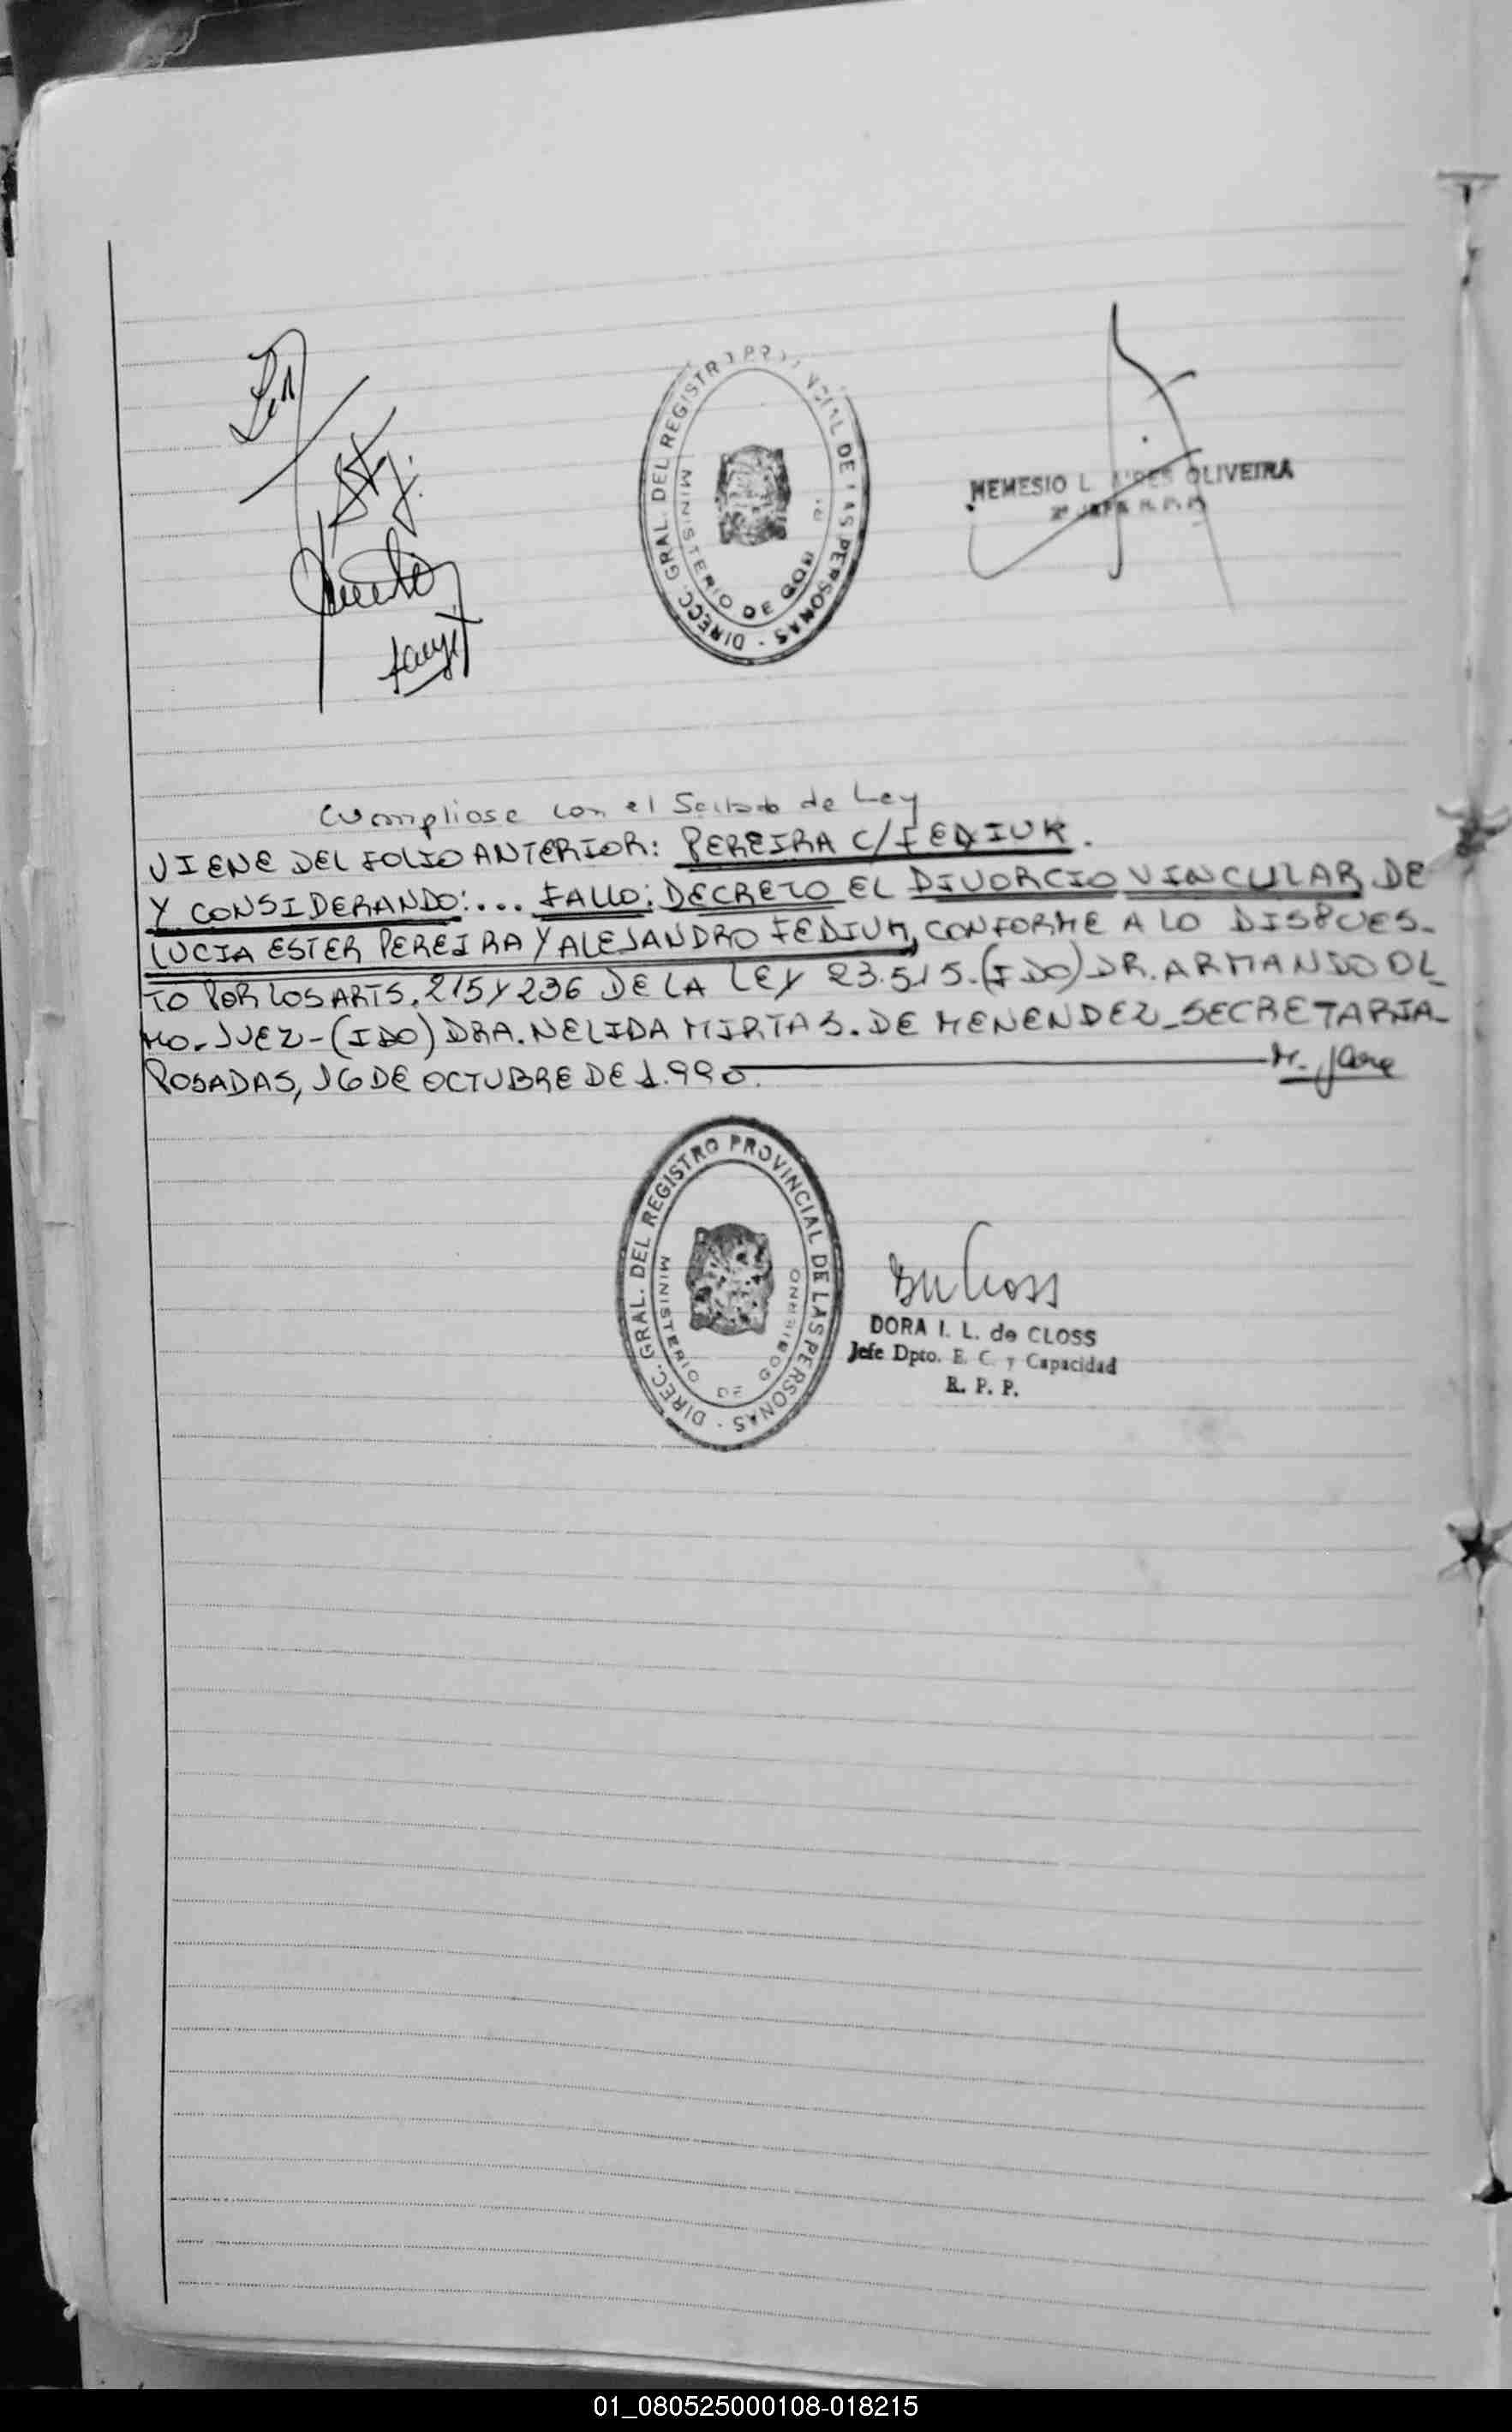 DIRECC. GRAL. DEL REGISTRO PROVINCIAL DE LAS PERSONAS -
MINISTERIO DE GOB
NEMESIO L. OLIVEIRA
Cumpliose con el Sellado de Ley
VIENE DEL FOLIO ANTERIOR: PEREIRA C/FEDIUK.
Y CONSIDERANDO:... FALLO: DECRETO EL DIVORCIO VINCULAR DE
LUCIA ESTER PEREIRA Y ALEJANDRO FEDIUK, CONFORME A LO DISPUES-
TO POR LOS ARTS. 215 Y 236 DE LA LEY 23.515.-(FDO) DR. ARMANDO OL-
MO- JUEZ-(FDO) DRA. NELIDA MIRTA S. DE MENENDEZ-SECRETARIA-
POSADAS, 16 DE OCTUBRE DE 1.990.
DIREC. GRAL. DEL REGISTRO PROVINCIAL DE LAS PERSONAS -
MINISTERIO DE GOBIERNO
DORA I. L. de CLOSS
Jefe Dpto. E. C. y Capacidad
R. P. P.
01_080525000108-018215